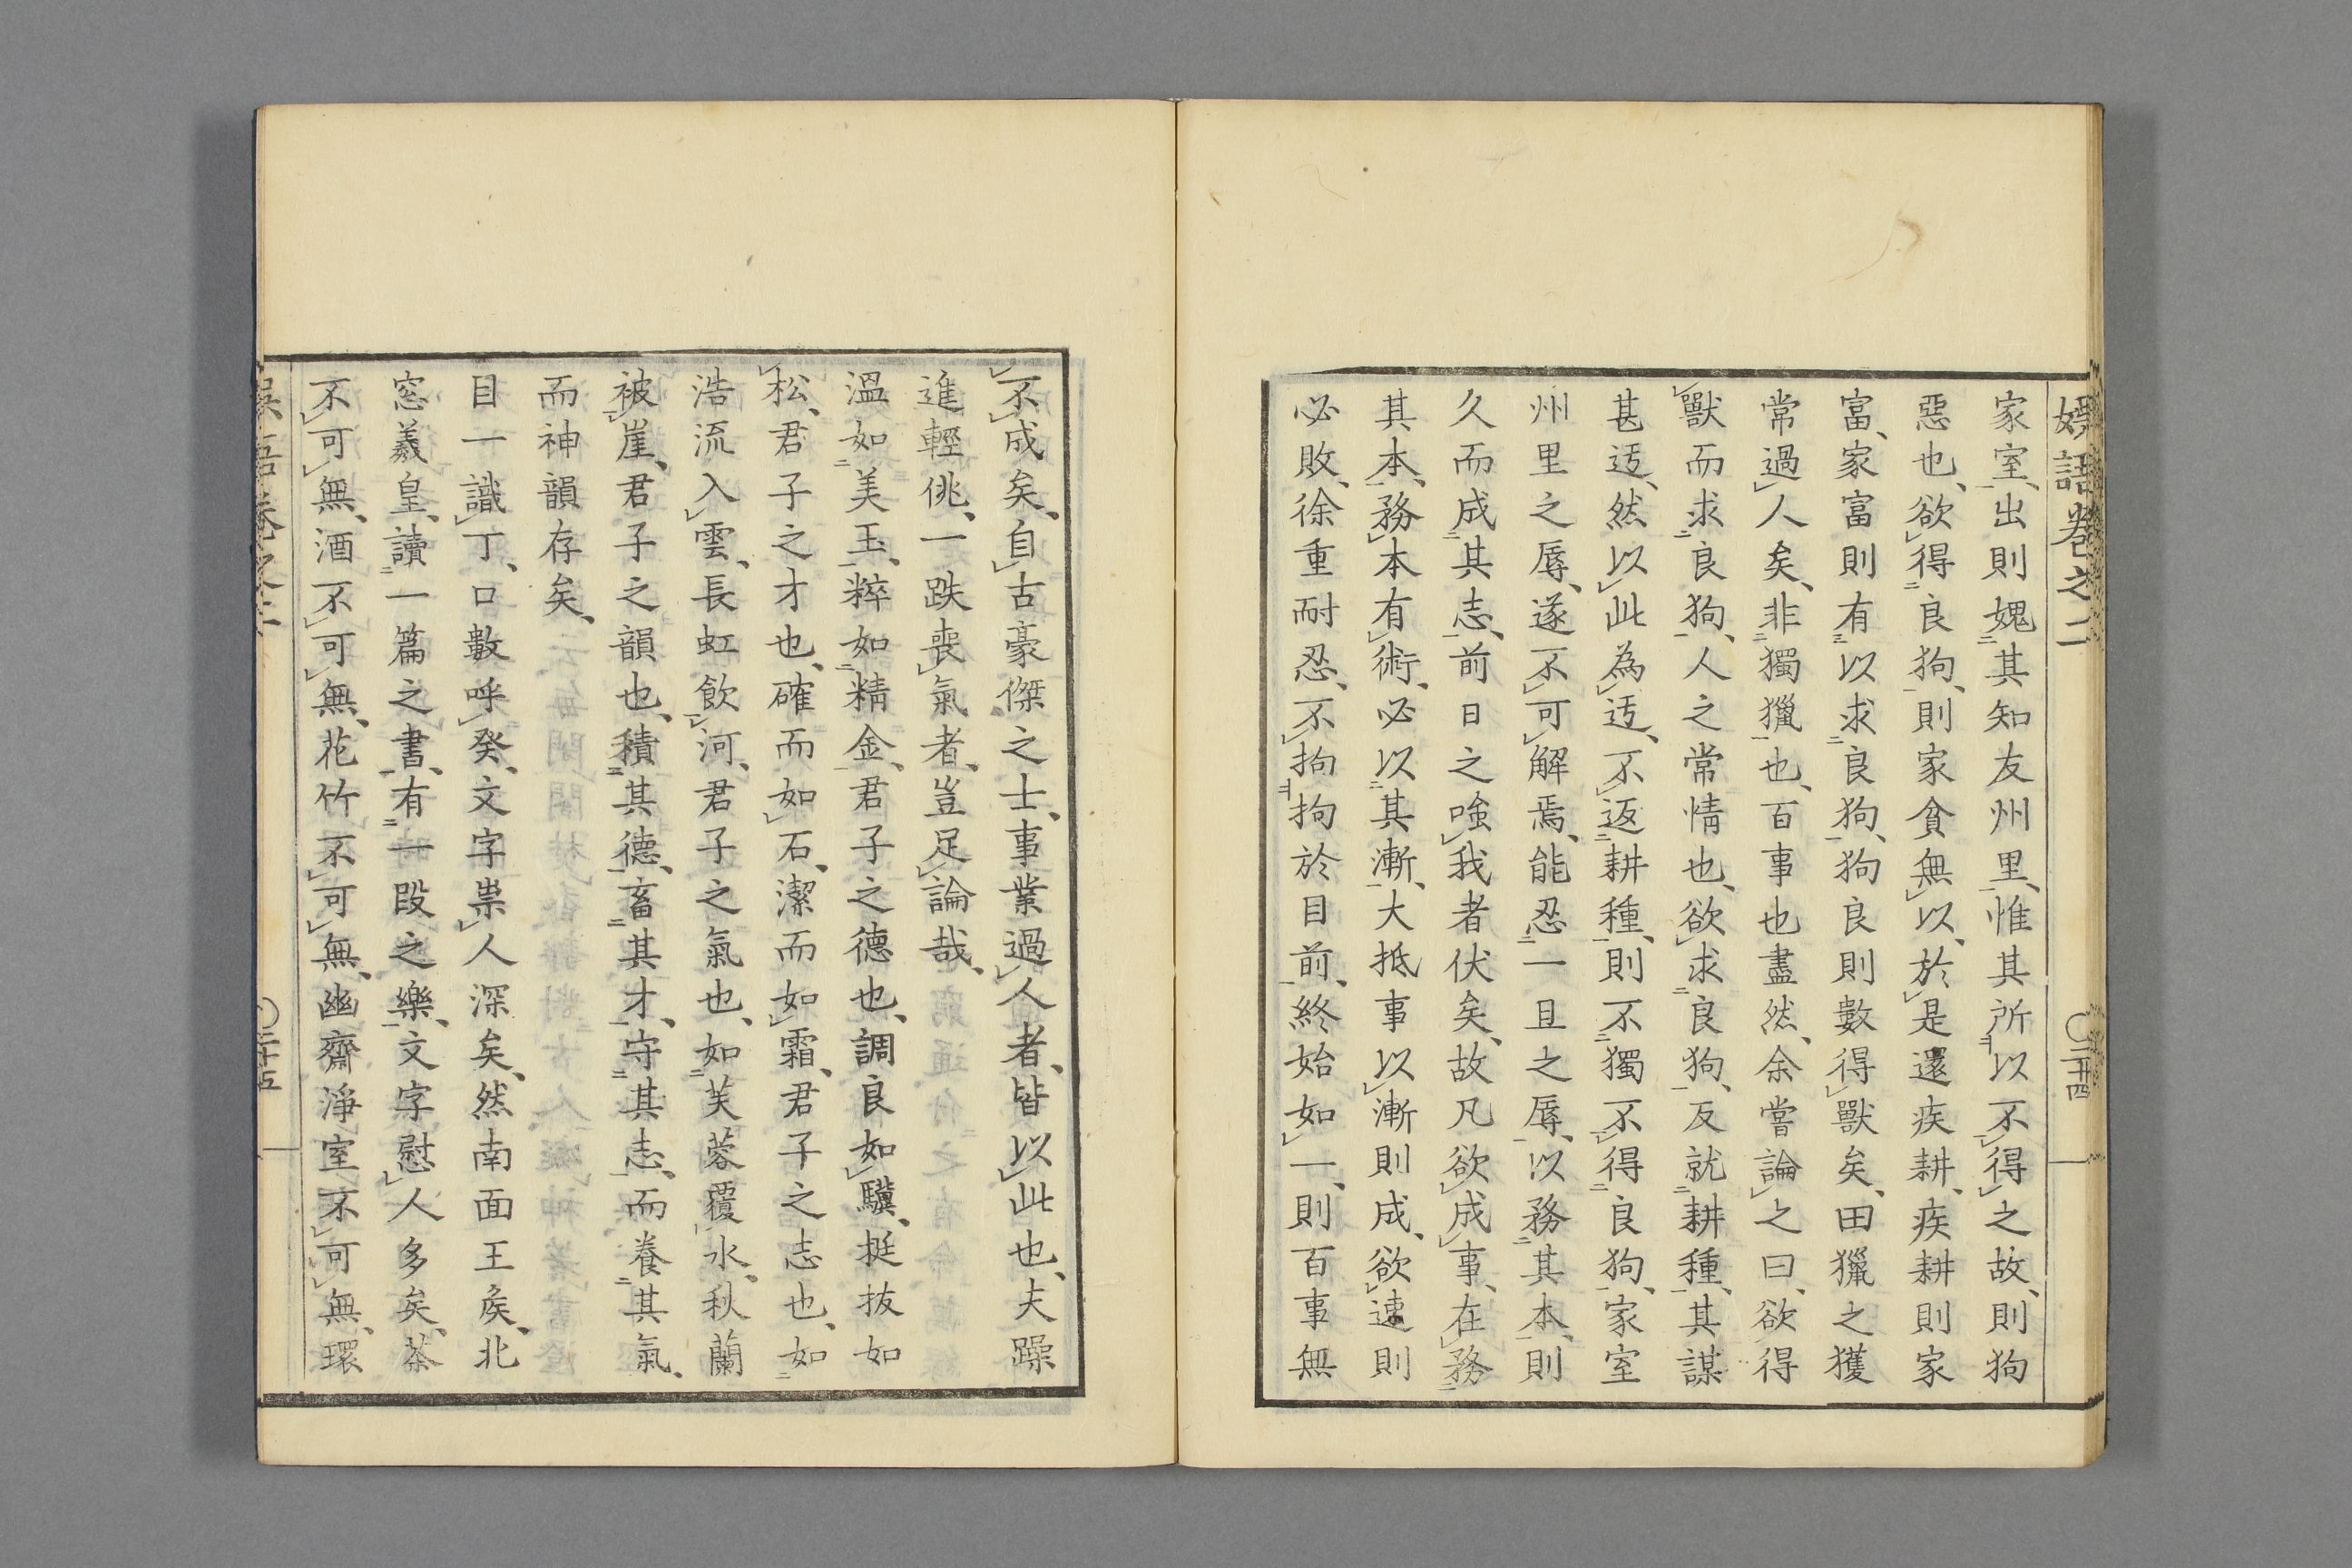 娯語巻之二
〇二十四
家室、出則媿其知友州里、惟其所以不得之故、則狗
惡也、欲得良狗、則家貧無以、於是還疾耕、疾耕則家
富、家富則有以求良狗、狗良則數得獸矣、田獵之獲
常過人矣、非獨獵也、百事也盡然、余嘗論之曰、欲得
獸而求良狗、人之常情也、欲求良狗、反就耕種、其謀
甚迃、然以此為迃、不返耕種、則不獨不得良狗、家室
州里之辱、遂不可解焉、能忍一旦之辱、以務其本、則
久而成其志、前日之嗤我者伏矣、故凡欲成事、在務
其本、務本有術、必以其漸、大抵事以漸則成、欲速則
必敗、徐重耐忍、不拘拘於目前、終始如一、則百事無
不成矣、自古豪傑之士、事業過人者、皆以此也、夫躁
進輕佻、一跌喪氣者、豈足論哉、
溫如美玉、粹如精金、君子之德也、調良如驥、挺拔如
松、君子之才也、確而如石、潔而如霜、君子之志也、如
浩流入雲、長虹飲河、君子之氣也、如芙蓉覆水、秋蘭
被崖、君子之韻也、積其德、畜其才、守其志、而養其氣、
而神韻存矣、
目一識丁、口數呼癸、文字祟人深矣、然南面王矦、北
窓羲皇、讀一篇之書、有一段之樂、文字慰人多矣、茶
不可無、酒不可無、花竹不可無、幽齋淨室不可無、環
娯語巻之二
〇二十五